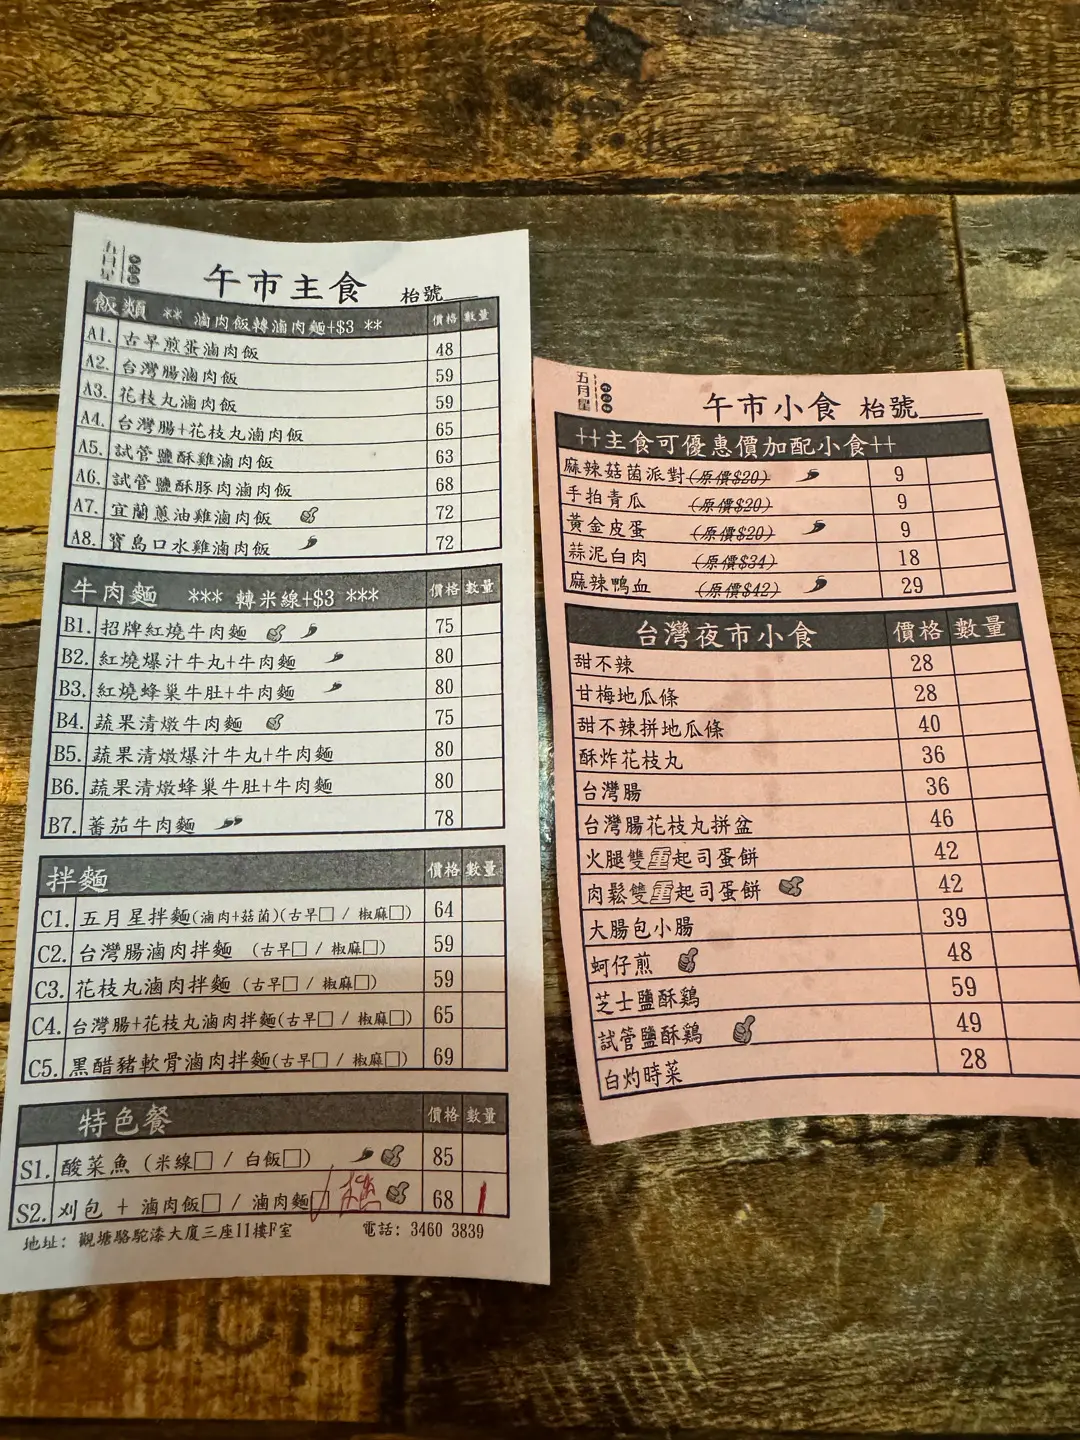 五月星
午市主食 枱號
飯類 ** 滷肉飯轉滷肉麵+$3 ** 價格 數量
A1. 古早煎蛋滷肉飯 48
A2. 台灣腸滷肉飯 59
A3. 花枝丸滷肉飯 59
A4. 台灣腸+花枝丸滷肉飯 65
A5. 試管鹽酥雞滷肉飯 63
A6. 試管鹽酥豚肉滷肉飯 68
A7. 宜蘭蔥油雞滷肉飯 72
A8. 寶島口水雞滷肉飯 72
牛肉麵 *** 轉米線+$3 *** 價格 數量
B1. 招牌紅燒牛肉麵 75
B2. 紅燒爆汁牛丸+牛肉麵 80
B3. 紅燒蜂巢牛肚+牛肉麵 80
B4. 蔬果清燉牛肉麵 75
B5. 蔬果清燉爆汁牛丸+牛肉麵 80
B6. 蔬果清燉蜂巢牛肚+牛肉麵 80
B7. 蕃茄牛肉麵 78
拌麵 價格 數量
C1. 五月星拌麵(滷肉+菇菌)(古早□ / 椒麻□) 64
C2. 台灣腸滷肉拌麵 (古早□ / 椒麻□) 59
C3. 花枝丸滷肉拌麵 (古早□ / 椒麻□) 59
C4. 台灣腸+花枝丸滷肉拌麵(古早□ / 椒麻□) 65
C5. 黑醋豬軟骨滷肉拌麵(古早□ / 椒麻□) 69
特色餐 價格 數量
S1. 酸菜魚 (米線□ / 白飯□) 85
S2. 刈包 + 滷肉飯□ / 滷肉麵□ 68
地址: 觀塘駱駝漆大廈三座11樓F室 電話: 3460 3839
五月星
午市小食 枱號
++主食可優惠價加配小食++
麻辣菇菌派對(原價$20) 9
手拍青瓜 (原價$20) 9
黃金皮蛋 (原價$20) 9
蒜泥白肉 (原價$34) 18
麻辣鴨血 (原價$42) 29
台灣夜市小食 價格 數量
甜不辣 28
甘梅地瓜條 28
甜不辣拼地瓜條 40
酥炸花枝丸 36
台灣腸 36
台灣腸花枝丸拼盆 46
火腿雙重起司蛋餅 42
肉鬆雙重起司蛋餅 42
大腸包小腸 39
蚵仔煎 48
芝士鹽酥鷄 59
試管鹽酥鷄 49
白灼時菜 28